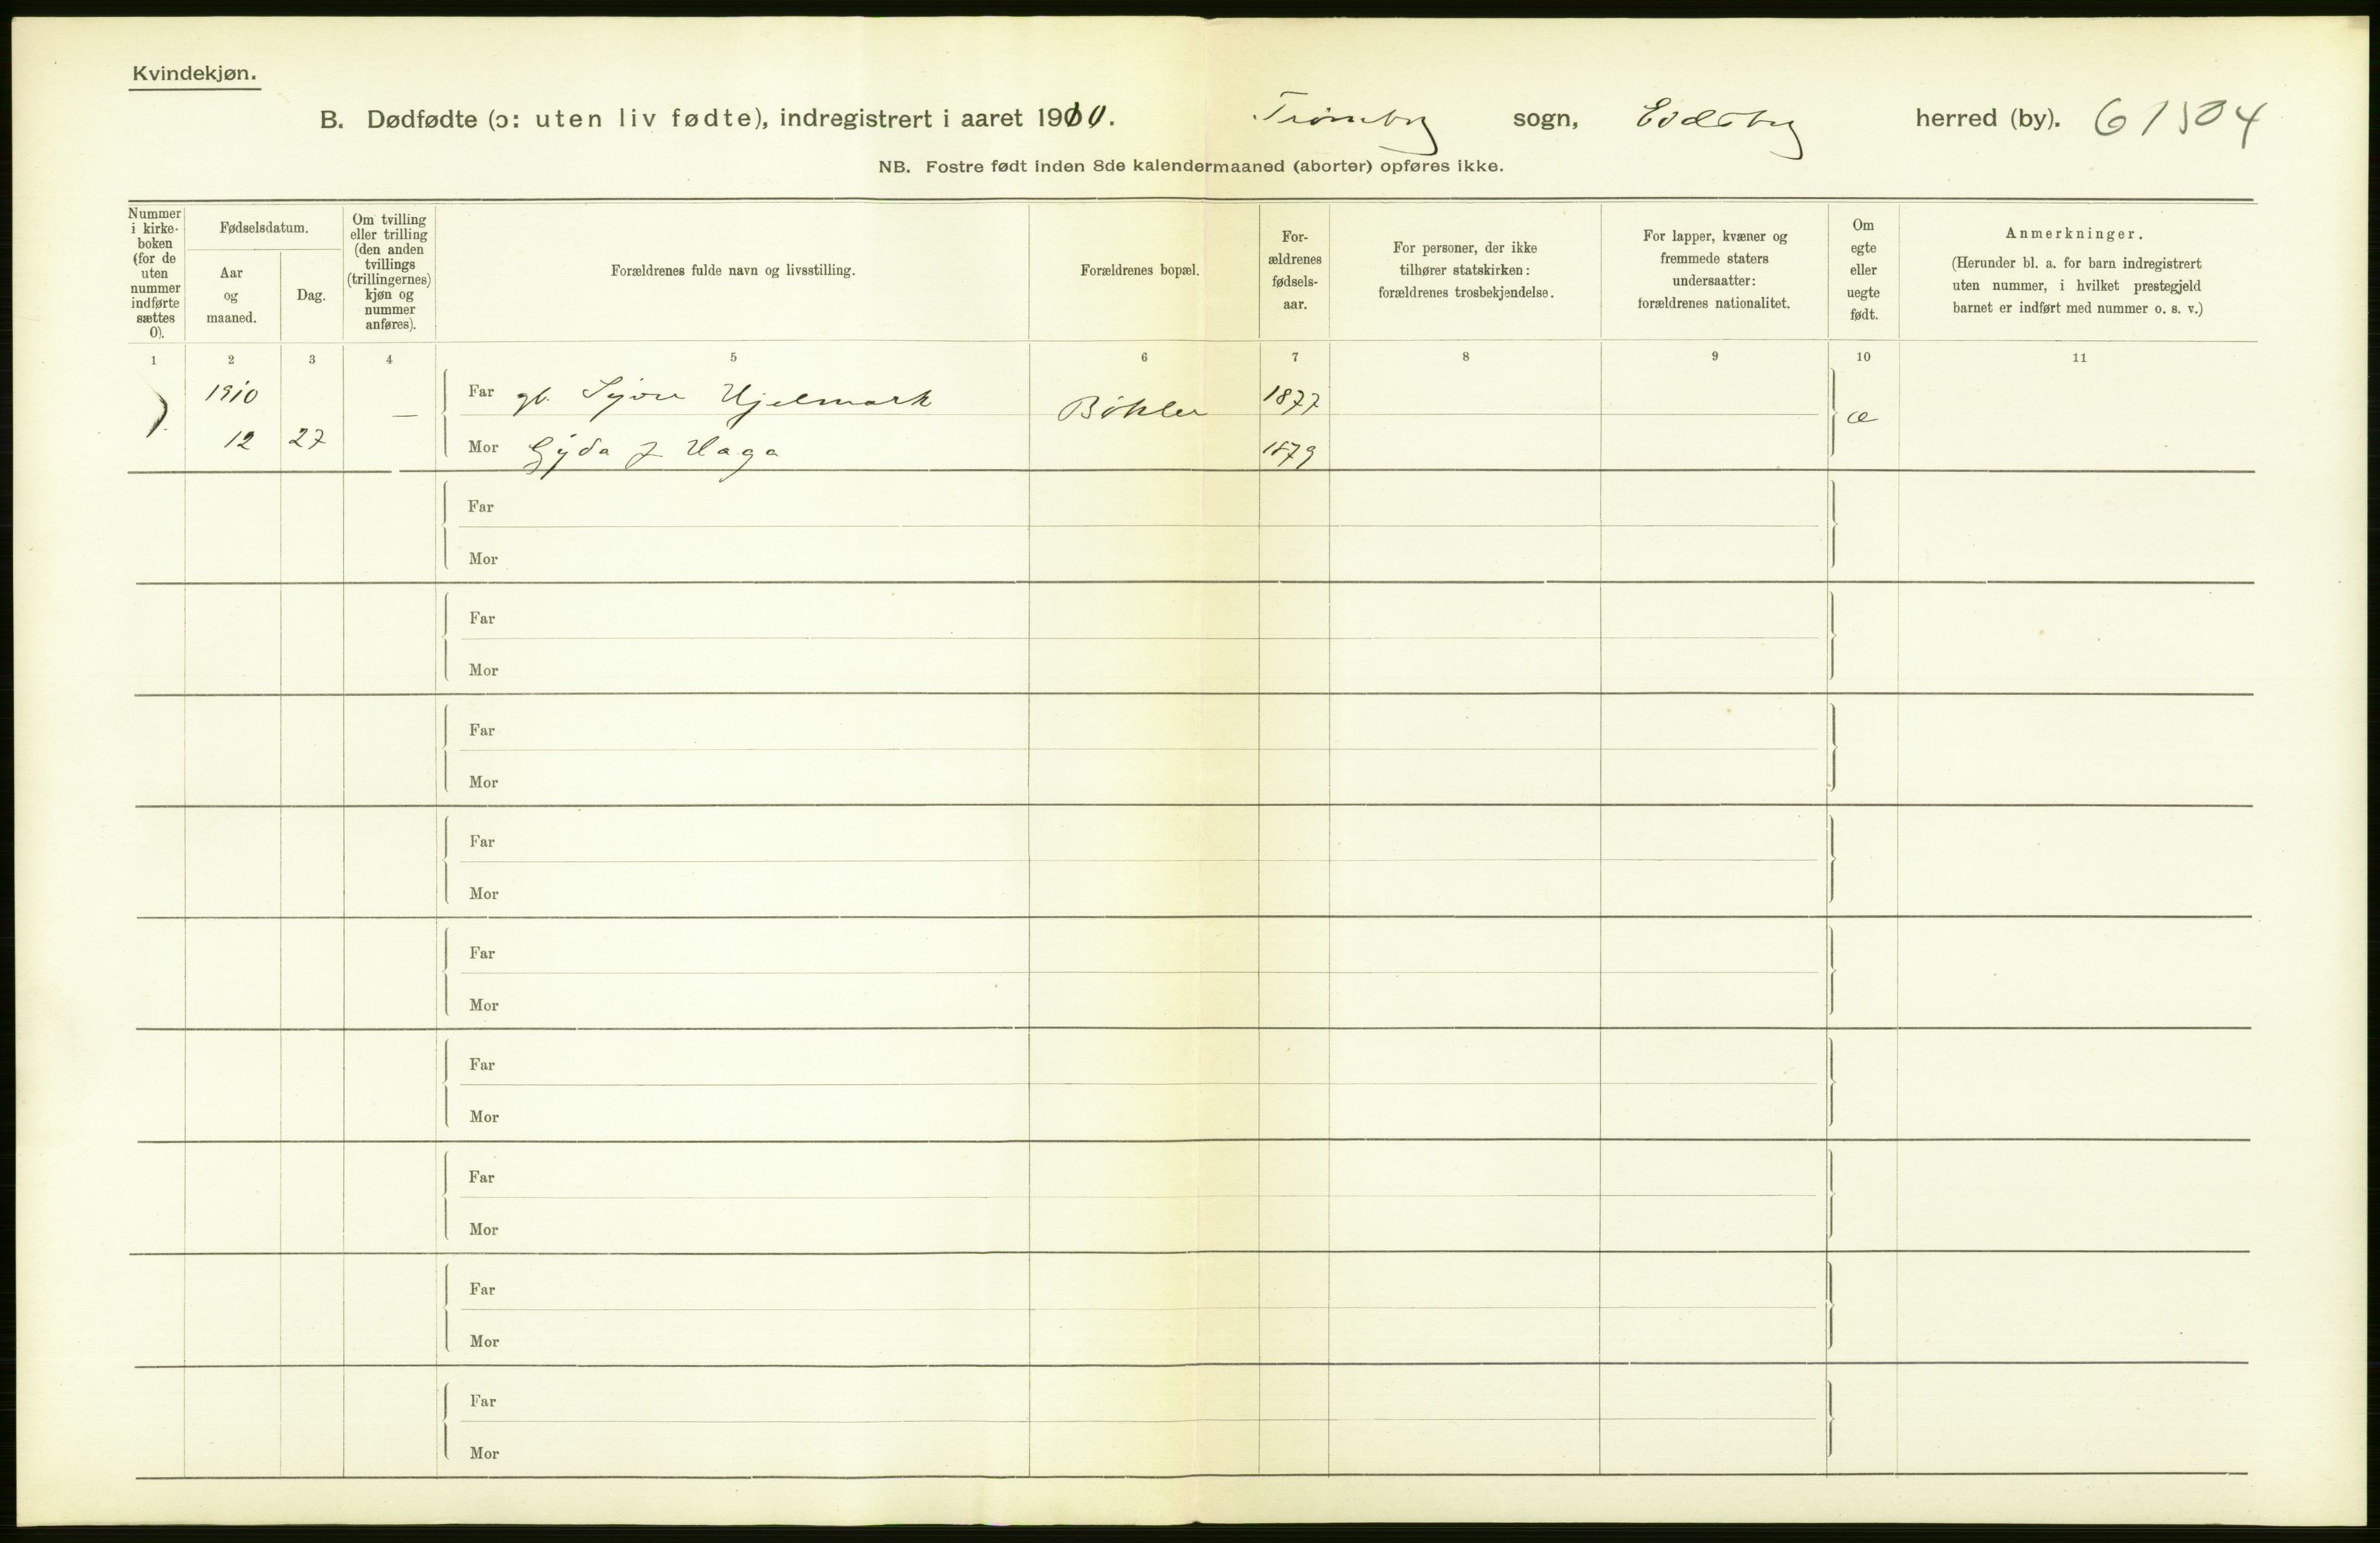 Kvindekjøn.
B. Dødfødte (ɔ: uten liv fødte), indregistrert i aaret 1910. Trømborg sogn, Eidsberg herred (by). 61504
NB. Fostre født inden 8de kalendermaaned (aborter) opføres ikke.
Nummer i kirke-boken (for de uten nummer indførte sættes 0).
Fødselsdatum.
Aar og maaned.
Dag.
Om tvilling eller trilling (den anden tvillings (trillingernes) kjøn og nummer anføres).
Forældrenes fulde navn og livsstilling.
Forældrenes bopæl.
For-ældrenes fødsels-aar.
For personer, der ikke tilhører statskirken: forældrenes trosbekjendelse.
For lapper, kvæner og fremmede staters undersaatter: forældrenes nationalitet.
Om egte eller uegte født.
Anmerkninger.
(Herunder bl. a. for barn indregistrert uten nummer, i hvilket prestegjeld barnet er indført med nummer o. s. v.)
1 2 3 4 5 6 7 8 9 10 11
1910 — Far gb. Hjelmark Bøhler 1877 æ
12 27 Mor Gyda J Haga 1879
Far
Mor
Far
Mor
Far
Mor
Far
Mor
Far
Mor
Far
Mor
Far
Mor
Far
Mor
Far
Mor